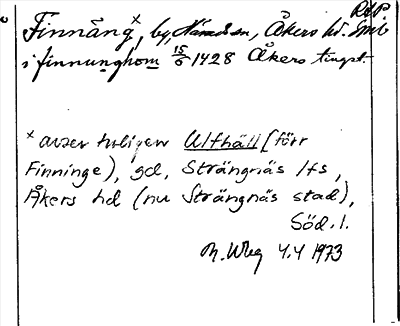 RAP
Finnång ˣ, by, Åkers hd. Söd
i finnunghom 15/6 1428 Åkers tingst.
ˣ avser troligen Ulfhäll (förr
Finninge), gd, Strängnäs lfs,
Åkers hd (nu Strängnäs stad),
Söd. l.
M. Wbg 4.4 1973